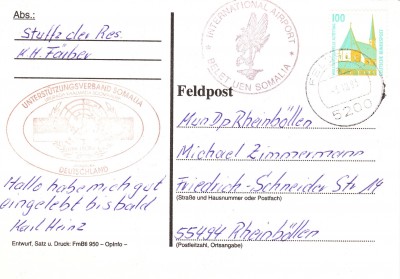 Abs.:
Stuffz der Res.
K.H. Färber
UNTERSTÜTZUNGSVERBAND SOMALIA
DEUTSCHLAND
Hallo habe mich gut
eingelebt bis bald
Karl Heinz
Entwurf, Satz u. Druck: FmBtl 950 – OpInfo –
INTERNATIONAL AIRPORT
BELET UEN SOMALIA
100
6200
Feldpost
Mun Dp Rheinböllen
Michael Zimmermann
Friedrich-Schneider Str 14
(Straße und Hausnummer oder Postfach)
55494 Rheinböllen
(Postleitzahl, Ortsangabe)